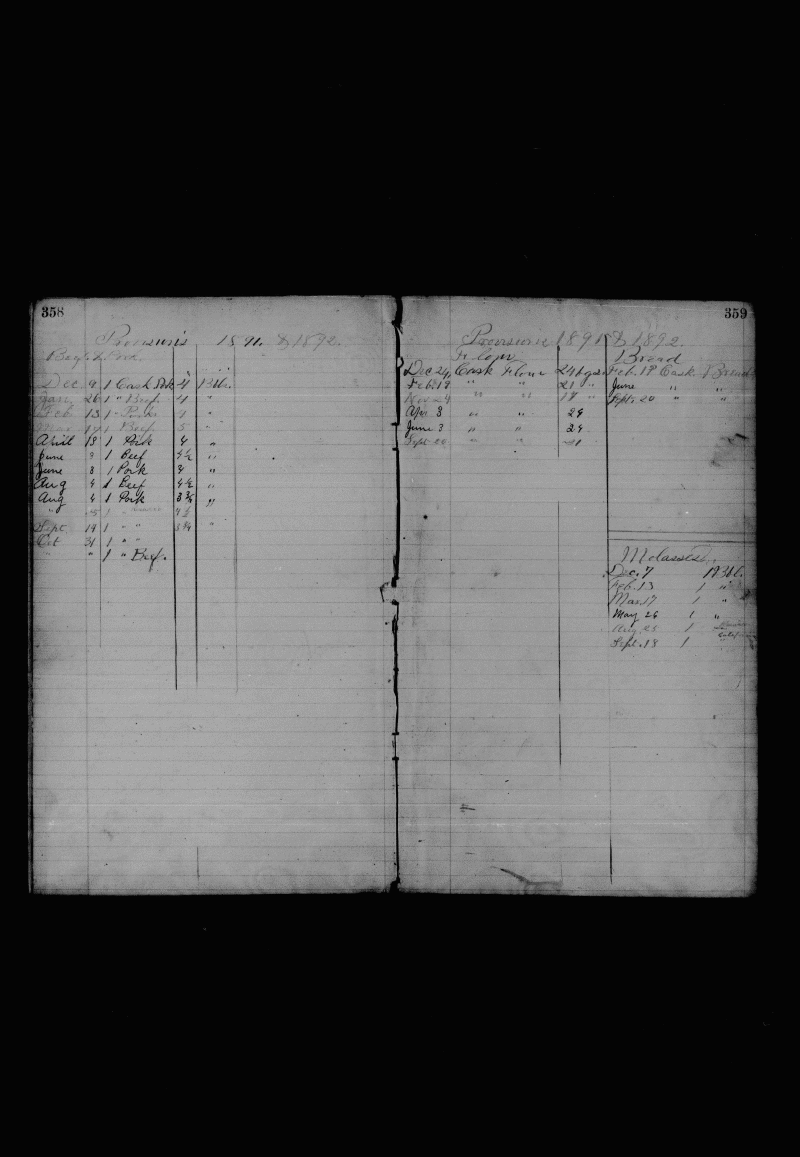 358
Provisions 1891. & 1892.
Beef & Pork
Dec 9 1 Cask Pork 4 Bbls.
Jan 26 1 " Beef 4 "
Feb 13 1 " Pork "
1 Beef 5 "
April 18 1 Pork 4 "
June 1 Beef 4 1/2 "
June 8 1 Pork 4 "
Aug 4 1 Beef 4 1/2 "
Aug 4 1 Pork 3 3/4 "
" 1 "
Sept. 19 1 " " 3 3/4 "
Oct 31 1 " "
" " 1 " Beef.
359
Provisions 1891 & 1892.
Flour
Dec 24, Cask Flour 24 bgs
Feb 19 " " 21 "
Nov 24 " " 19 "
Apr 3 " " 24
June 3 " " 24
Sept 20 " " 21
Bread
Feb. 19 Cask Bread
June " "
Sept. 20 " "
Molasses.
Dec. 7 1 Bbl.
Feb. 13 1 "
Mar. 17 1 "
May 26 1 "
Aug 25 1
Sept. 13 1